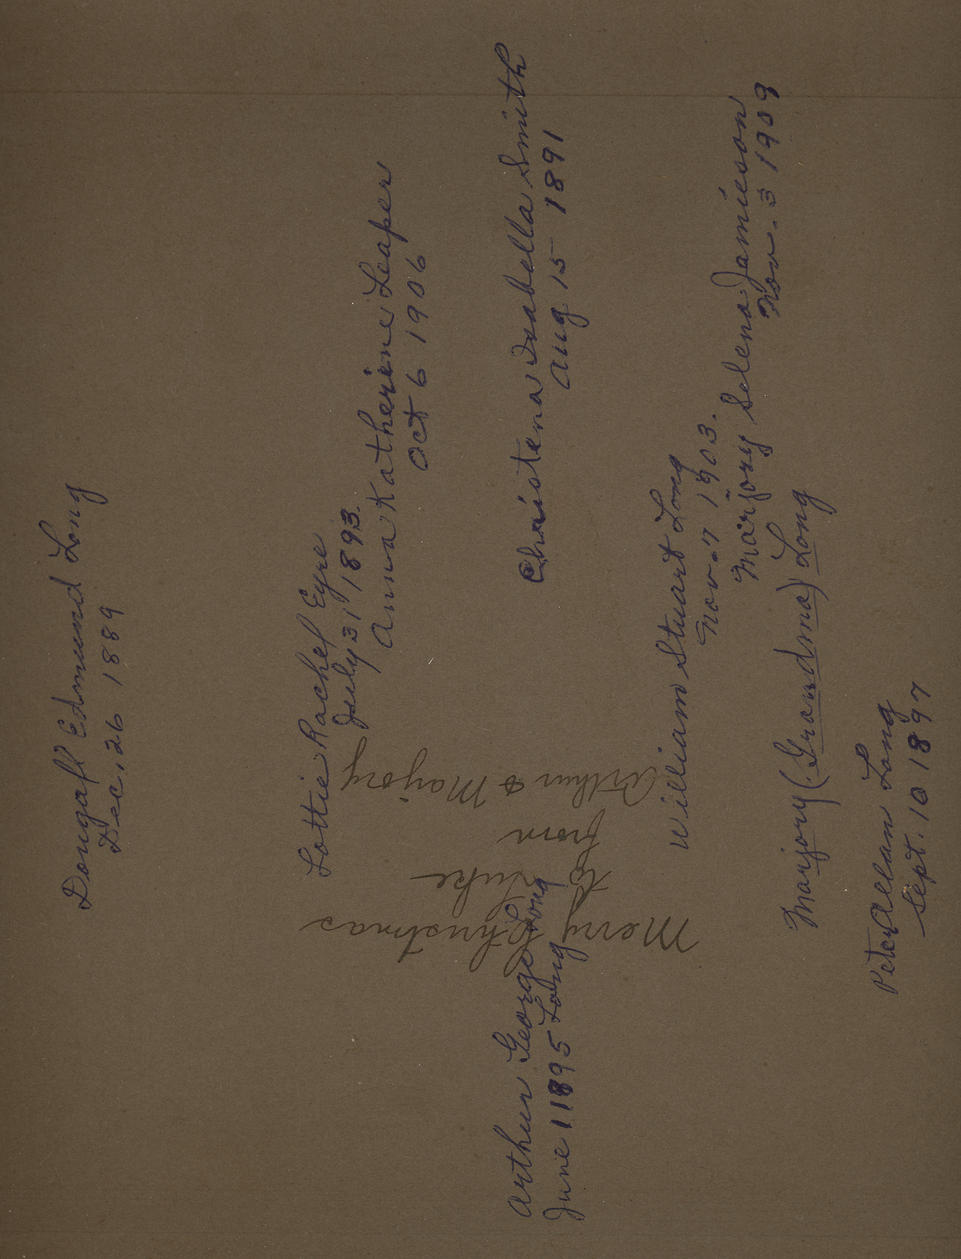 Dougall Edmund Long
Dec. 26 1889
Lottie Rachel Eyre
July 31 1893.
Anna Katherine Leaper
Oct 6 1906
Arthur George Long
June 1 1895 Long
Christena Isabella Smith
Aug 15 1891
William Stuart Long
Nov. 7 1903.
Marjory Selena Jamieson
Nov. 3 1909
Marjory (Grandma) Long
Peter Allan Long
Sept. 10 1897
Merry Christmas
to Luke
from
Arthur & Marjory